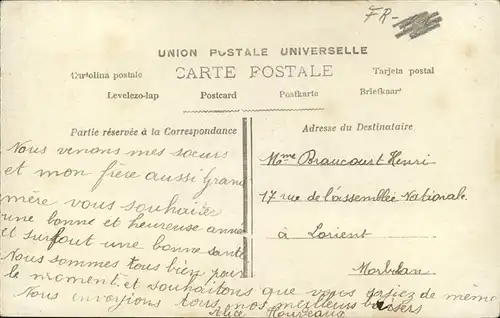 FR-
UNION POSTALE UNIVERSELLE
CARTE POSTALE
Cartolina postale
Tarjeta postal
Levelezo-lap
Postcard
Postkarte
Briefkaart
Partie réservée à la Correspondance
Nous venons mes sœurs
et mon frère aussi Grand
mère vous souhaiter
une bonne et heureuse anné
et surtout une bonne santé
Nous sommes tous bien pour
le moment et souhaitons que vous soyiez de même
Nous envoyions tous nos meilleurs baisers
Alice
Adresse du Destinataire
Mme Braucourt Henri
17 rue de l'assemblée Nationale
à Lorient
Morbihan